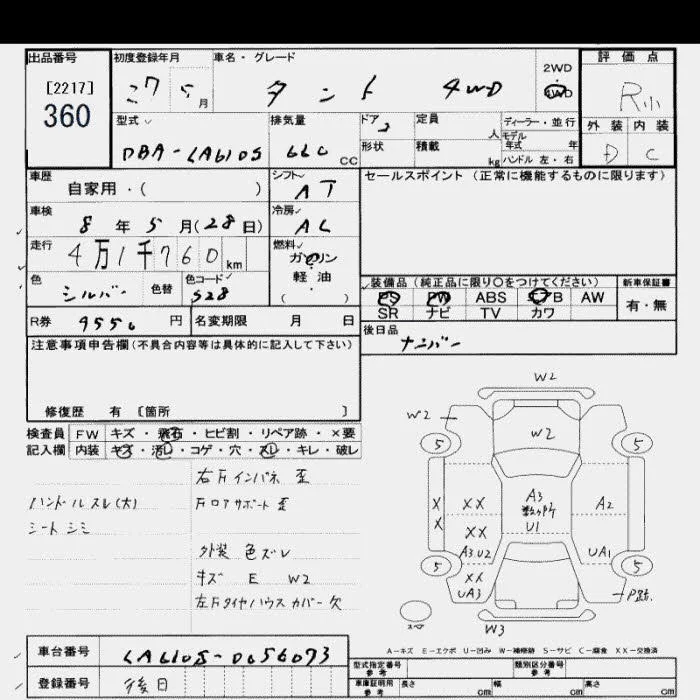 出品番号 初度登録年月 車名・グレード 評価点
[2217] 27 5月 タント 4WD 2WD 4WD R小
360
型式 排気量 ドア 定員 人 ディーラー・並行 外装 内装
DBA-LA610S 660 CC 形状 積載 kg モデル年式 年 ハンドル 左・右 D C
車歴 自家用・( ) シフト AT セールスポイント (正常に機能するものに限ります)
車検 8年5月(28日) 冷房 AC
走行 4万1千760km 燃料 ガソリン
色 シルバー 色替 色コード S28 軽・油 ( )
装備品 (純正品に限り○をつけてください) 新車保証書
PS PW ABS AW 有・無
SR ナビ TV カワ
R券 9550円 名変期限 月 日 後日品
ナンバー
注意事項申告欄(不具合内容等は具体的に記入して下さい)
修復歴 有 [箇所 ]
検査員 FW キズ・飛石・ヒビ割・リペア跡・×要
記入欄 内装 キズ・汚レ・コゲ・穴・スレ・キレ・破レ
右Fインパネ 歪
ハンドルスレ(大) Fロアサポート 歪
シート シミ
外装 色ズレ
キズ E W2
左Fタイヤハウスカバー欠
W2
W2 W2
5 5
XX A3 A2
X X 数ヶ所
XX U1
A3 U2 UA1
5 5
XX
UA3 P跡
W3
A-キズ E-エクボ U-凹み W-補修跡 S-サビ C-腐食 XX-交換済
車台番号 LA610S-0056073 型式指定番号 参考 類別区分番号 参考
登録番号 後日 車庫証明用 参考 長さ cm 幅 cm 高さ cm